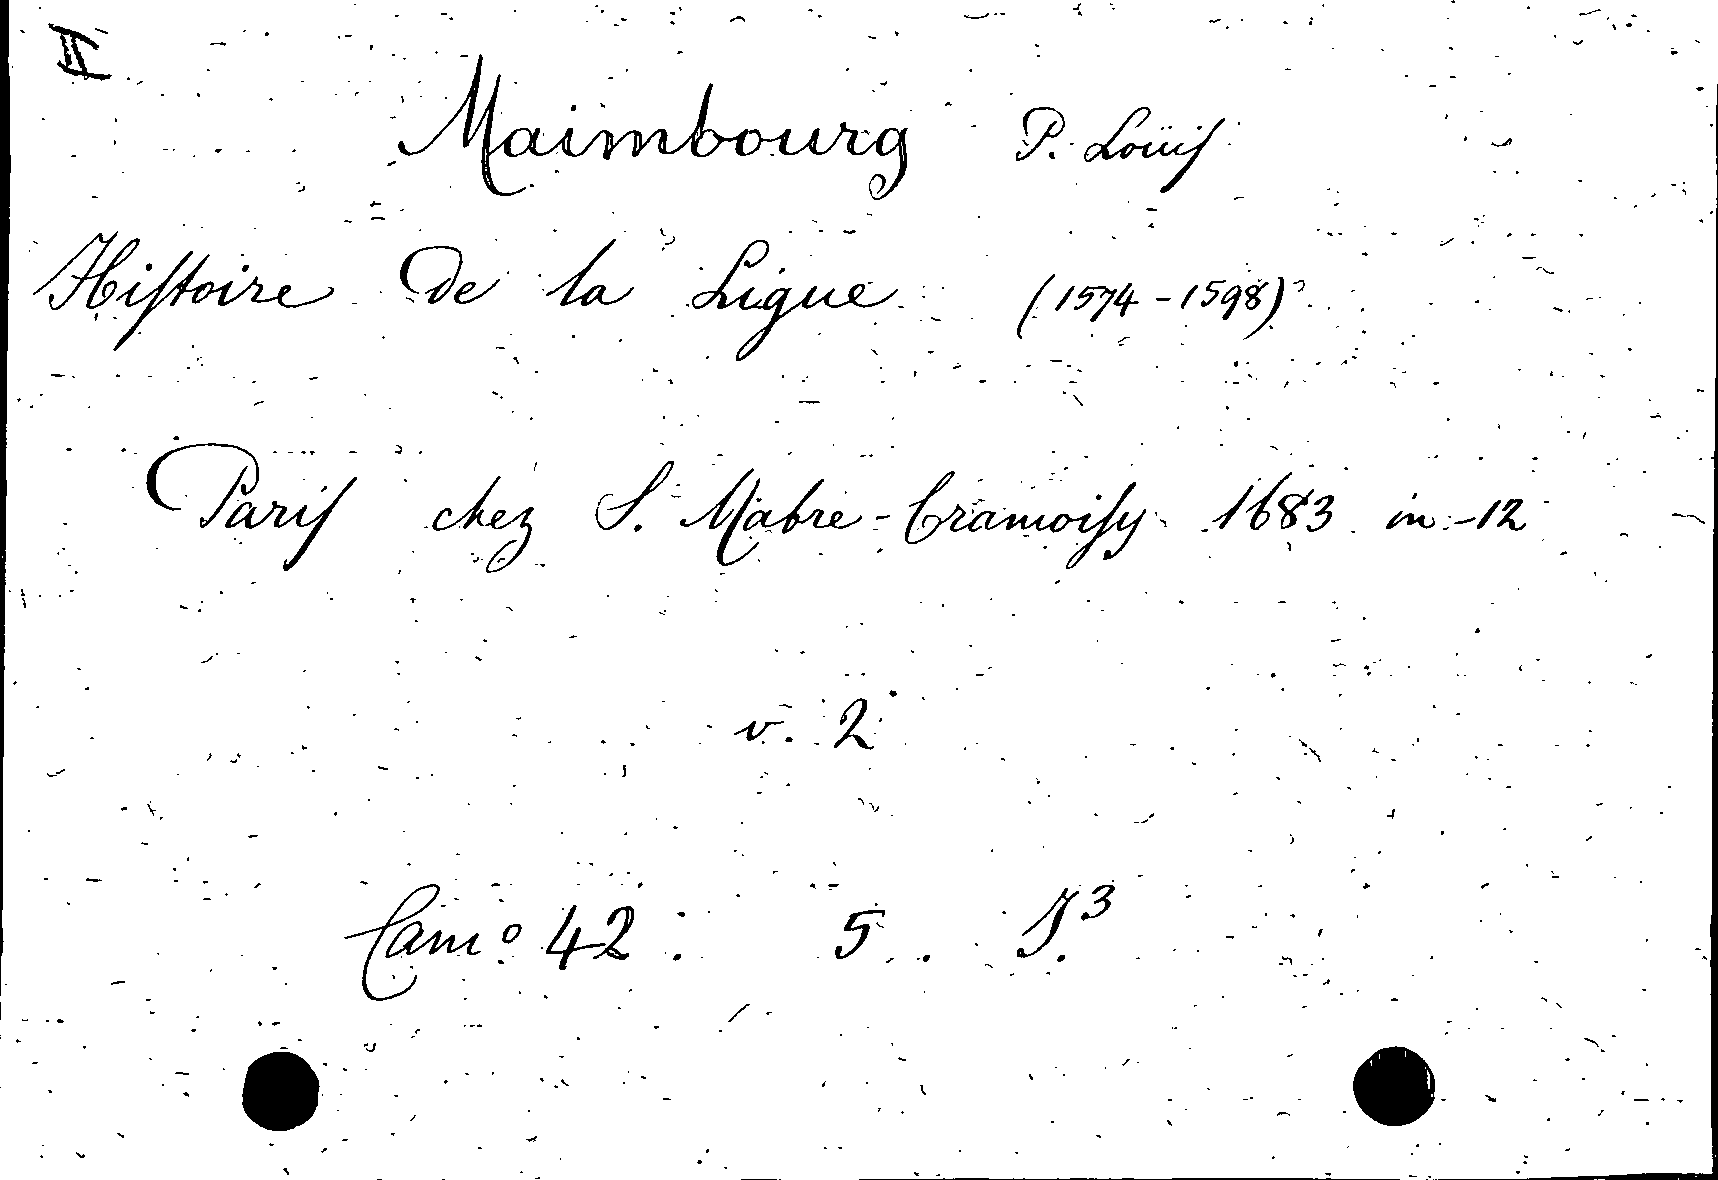 II
Maimbourg P. Loüiſ
Hiſtoire de la Ligue (1574-1598)
Pariſ chez S. Mabre-Cramoiſy 1683 in-12
v. 2
Camº 42. 5.